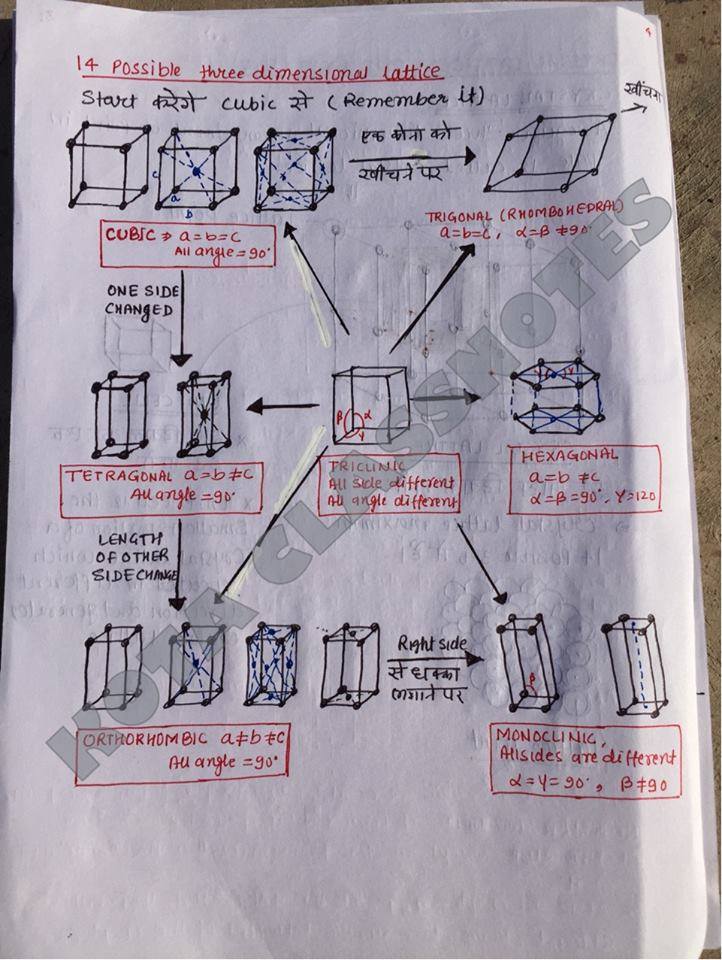 14 Possible three dimensional lattice
Start करेगे cubic से (Remember it)
एक कोना को
खींचने पर
खींचना
c
a
b
CUBIC ⇒ a=b=c
All angle = 90°
TRIGONAL (RHOMBOHEDRAL)
a=b=c, α=β≠90°
ONE SIDE
CHANGED
β α
γ
TETRAGONAL a=b≠c
All angle = 90°
TRICLINIC
All side different
All angle different
HEXAGONAL
a=b≠c
α=β=90°, γ=120
LENGTH
OF OTHER
SIDE CHANGE
Right side
से धक्का
लगाने पर
β
ORTHORHOMBIC a≠b≠c
All angle = 90°
MONOCLINIC,
All sides are different
α=γ=90°, β≠90
KOTA CLASSNOTES